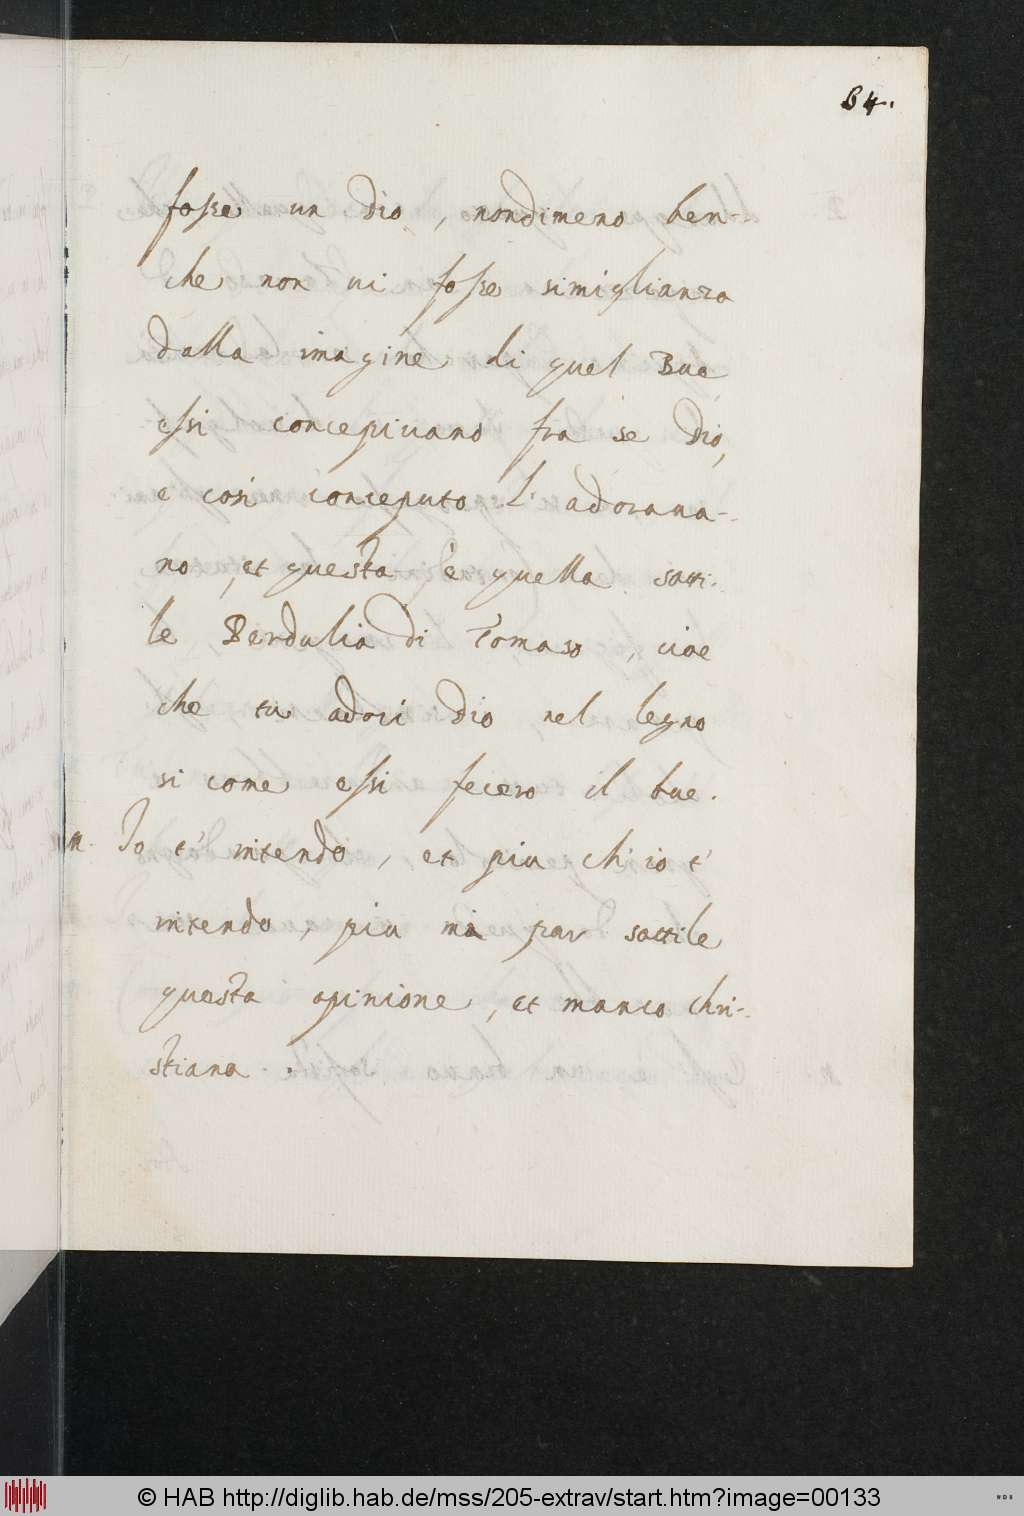 64.
fosse un dio, nondimeno ben-
che non ui fosse simiglianza
dalla imagine di quel Bue
essi concepiuano fra se Dio,
e così conceputo l'adoraua-
no, et questa è quella sotti-
le Berdulia di Tomaso, cioe
che tu adori Dio nel legno
si come essi fecero il bue.
Io t'intendo, et piu ch'io t'
intendo, piu mi par sottile
questa opinione, et manco chri-
stiana.
© HAB http://diglib.hab.de/mss/205-extrav/start.htm?image=00133